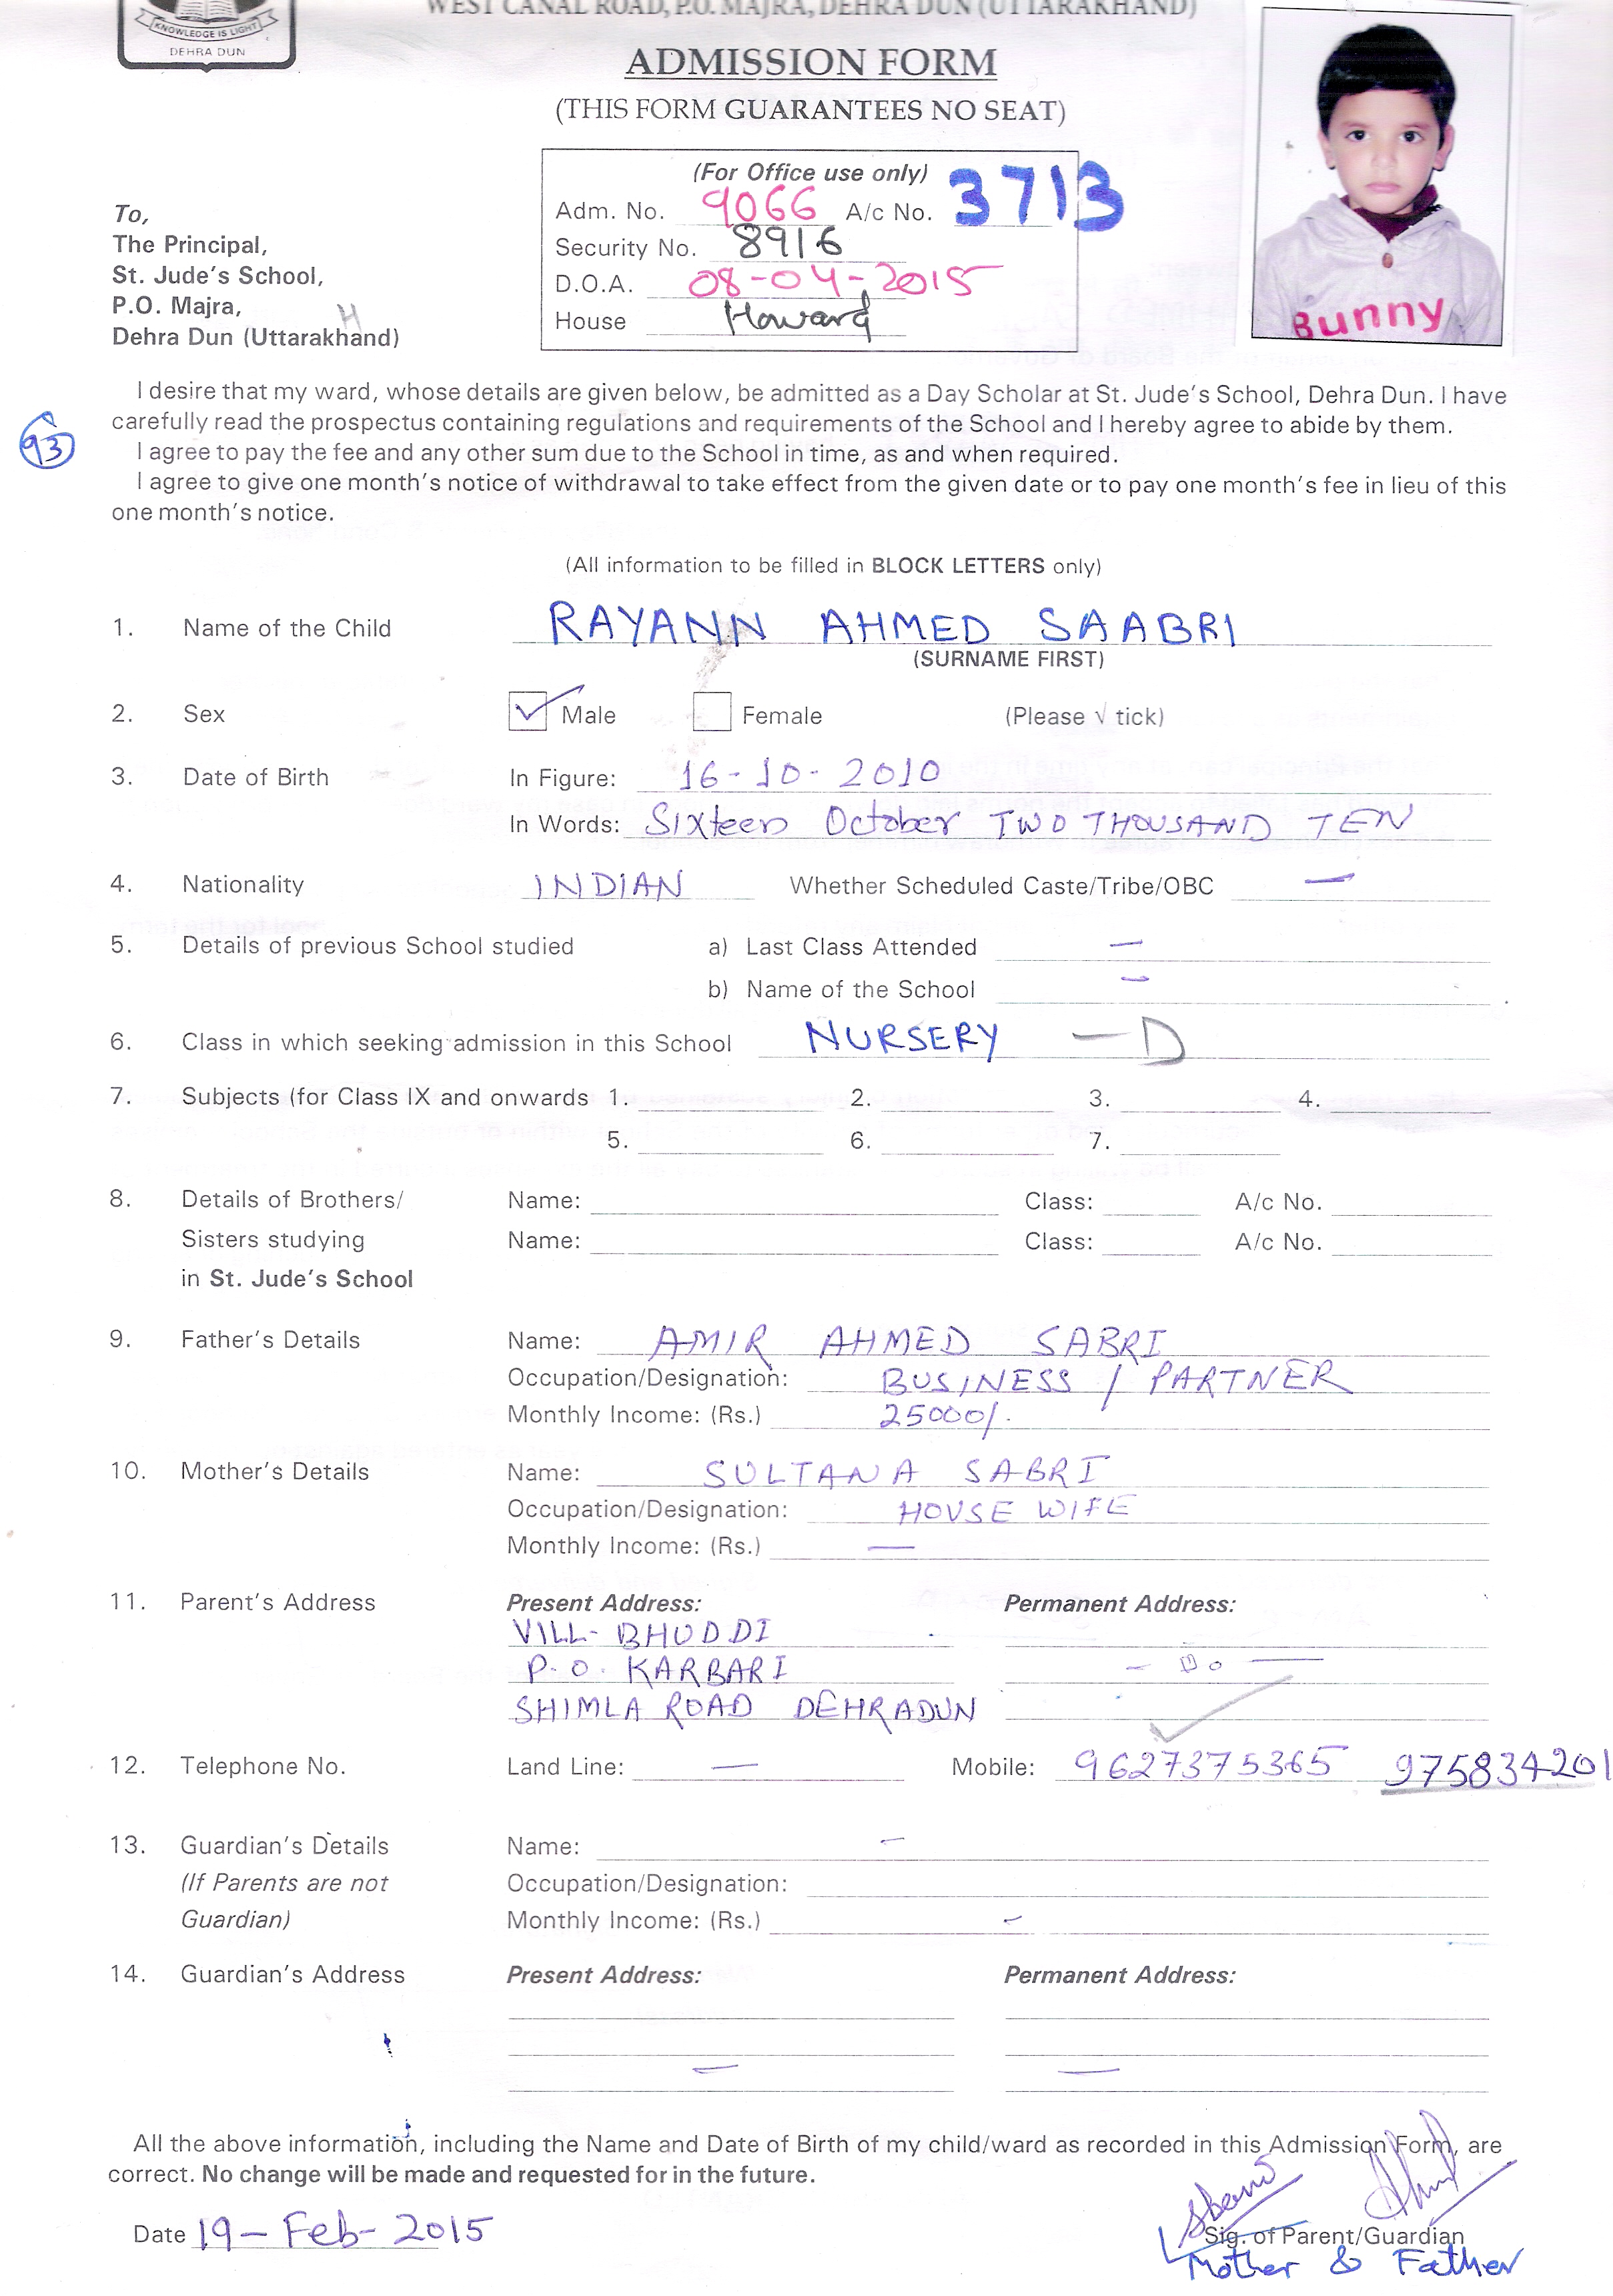 WEST CANAL ROAD, P.O. MAJRA, DEHRA DUN (UTTARAKHAND)
KNOWLEDGE IS LIGHT
DEHRA DUN
ADMISSION FORM
(THIS FORM GUARANTEES NO SEAT)
(For Office use only)
Adm. No. 9066 A/c No. 3713
Security No. 8916
D.O.A. 08-04-2015
House Howard
Bunny
To,
The Principal,
St. Jude's School,
P.O. Majra,
H
Dehra Dun (Uttarakhand)
I desire that my ward, whose details are given below, be admitted as a Day Scholar at St. Jude's School, Dehra Dun. I have
carefully read the prospectus containing regulations and requirements of the School and I hereby agree to abide by them.
93
I agree to pay the fee and any other sum due to the School in time, as and when required.
I agree to give one month's notice of withdrawal to take effect from the given date or to pay one month's fee in lieu of this
one month's notice.
(All information to be filled in BLOCK LETTERS only)
1. Name of the Child RAYANN AHMED SAABRI
(SURNAME FIRST)
2. Sex ✓ Male Female (Please √ tick)
3. Date of Birth In Figure: 16-10-2010
In Words: Sixteen October TWO THOUSAND TEN
4. Nationality INDIAN Whether Scheduled Caste/Tribe/OBC —
5. Details of previous School studied a) Last Class Attended —
b) Name of the School —
6. Class in which seeking admission in this School NURSERY — D
7. Subjects (for Class IX and onwards 1. 2. 3. 4.
5. 6. 7.
8. Details of Brothers/ Name: Class: A/c No.
Sisters studying Name: Class: A/c No.
in St. Jude's School
9. Father's Details Name: AMIR AHMED SABRI
Occupation/Designation: BUSINESS / PARTNER
Monthly Income: (Rs.) 25000/.
10. Mother's Details Name: SULTANA SABRI
Occupation/Designation: HOUSE WIFE
Monthly Income: (Rs.) —
11. Parent's Address Present Address: Permanent Address:
VILL- BHUDDI
P.O. KARBARI — Do —
SHIMLA ROAD DEHRADUN
12. Telephone No. Land Line: — Mobile: 9627375365 975834201
13. Guardian's Details Name: —
(If Parents are not Occupation/Designation:
Guardian) Monthly Income: (Rs.) —
14. Guardian's Address Present Address: Permanent Address:
— —
All the above information, including the Name and Date of Birth of my child/ward as recorded in this Admission Form, are
correct. No change will be made and requested for in the future.
Date 19-Feb-2015 Sig. of Parent/Guardian
Mother & Father